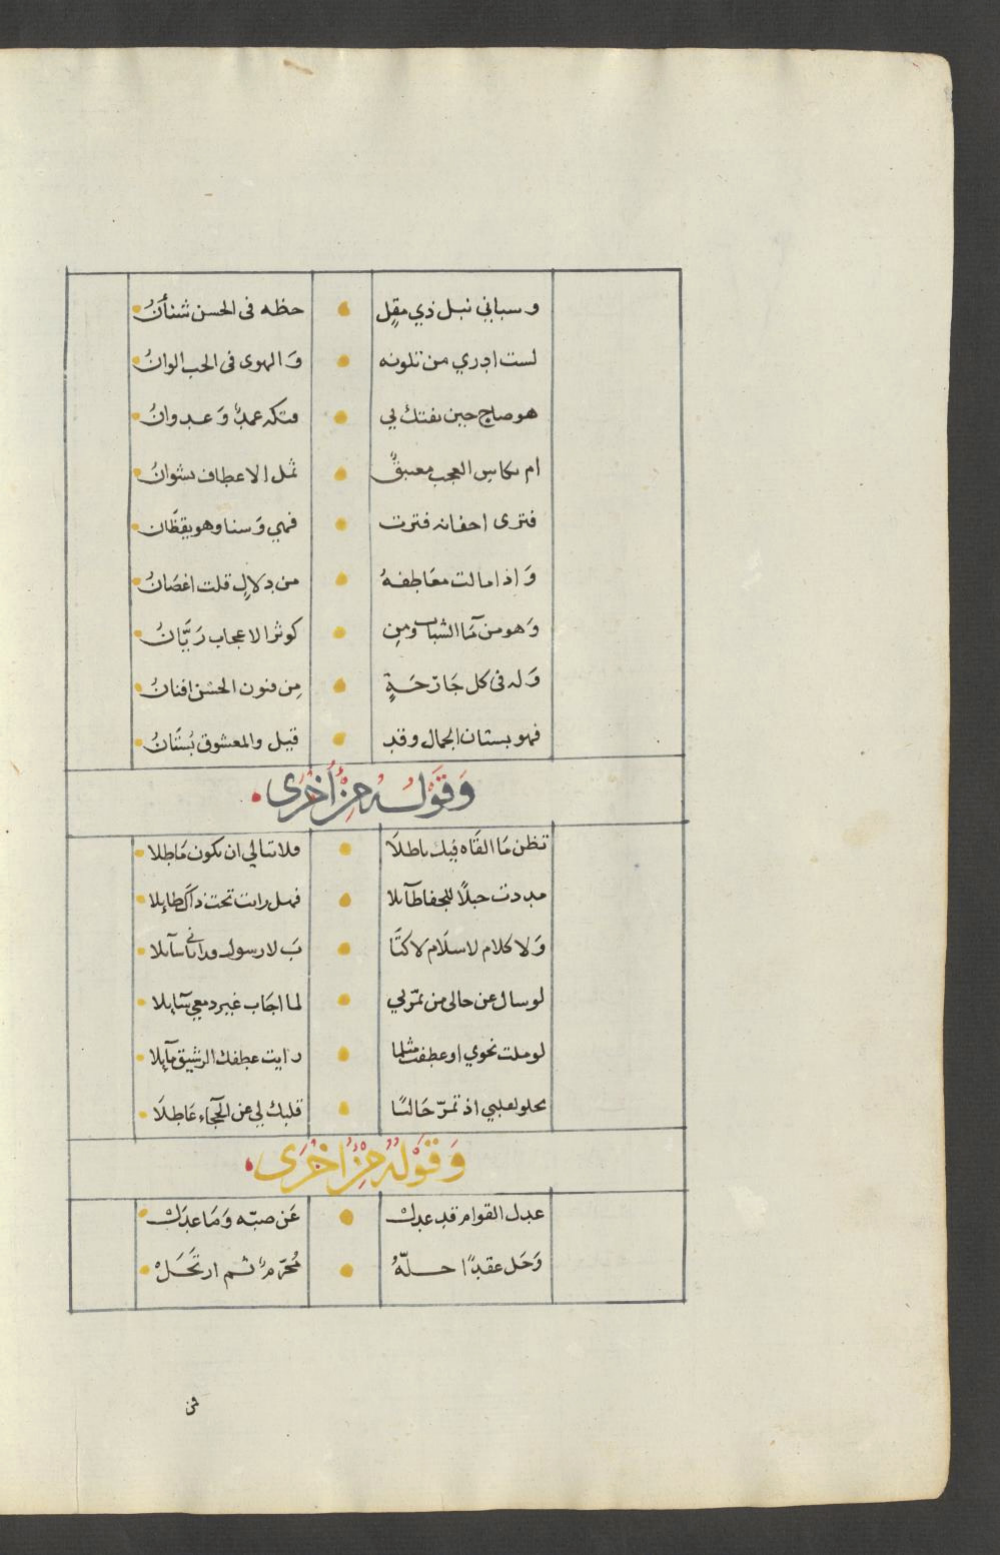 وسباني نبل ذي مقل حظه فى الحسن شنأنُ
لست ادري من تلونه وَالهوى فى الحب الوانُ
هو صاح حين يفتك بي فتكه عمدٌ وَعدوانُ
ام بكاس العجب مغتبقٌ ثمل الاعطاف نشوانُ
فترى اجفانه فترت فهي وَسنا وهو يقظَان
وَاذا مالت معَاطفهُ من دلالٍ قلت اغصَانُ
وَهو من مَآ الشباب ومن كوثر الاعجاب رَيَّانُ
وَله فى كل جَارحَةٍ مِن فنون الحسن افنانُ
فهو بستان الجمال وقد قيل والمعشوق بُستَانُ
وَقَوْلُهُ مِنْ أُخْرَى
تظن مَا القَاه فيك باطلَا فلا تبالي ان تكون مَاطلا
مددت حبلًا للجفا طآئلا فهل رايت تحت ذاكَ طايلا
وَلا كلام لا سلَام لا كتَا بَ لا رسول سآئلا
لو سال عن حالى من تمّر بي لما اجَاب غير دمعي سَآيلا
لو ملت نحوي او عطفت مثلما رايت عطفك الرشيق مآيلا
يحلو لقلبي اذ تمرّ حَاليًا قلبك لي عن عَاطلَا
وَقَوْلُهُ مِنْ اُخْرَى
عدل القوام قد عدلْ عَن صبّه وَمَا عدَلْ
وَحَل عقدًا حلّهُ مُحَرّمٌ ثم ارتَحَلْ